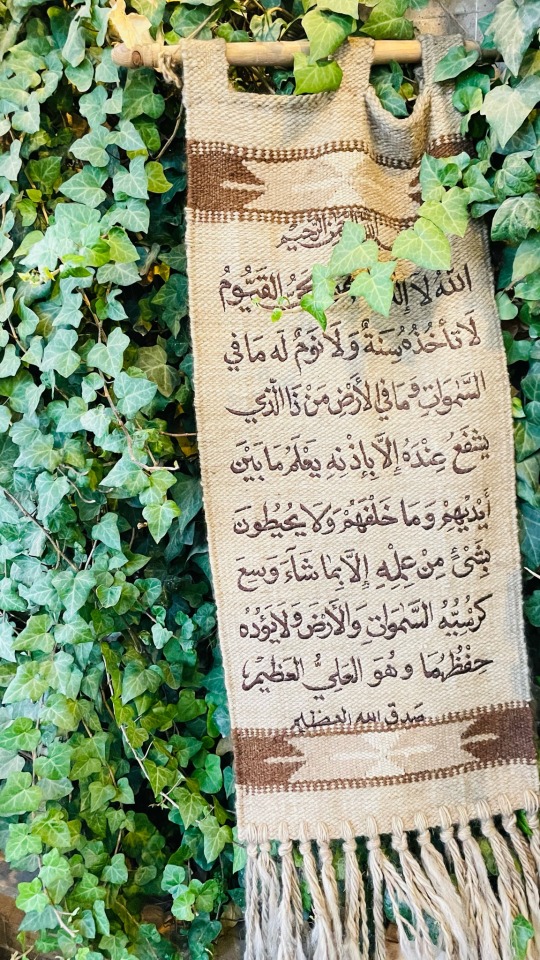 الله الرحمن الرحيم
اللهُ لَا إِلَهَ الحَيُّ القَيُّومُ
لَا تَأْخُذُهُ سِنَةٌ وَلَا نَوْمٌ لَه مَا فِي
السَّمٰوَاتِ وَمَا فِي الأَرْضِ مَنْ ذَا الَّذِي
يَشْفَعُ عِنْدَهُ إِلَّا بِإِذْنِهِ يَعْلَمُ مَا بَيْنَ
أَيْدِيهِمْ وَمَا خَلْفَهُمْ وَلَا يُحِيْطُونَ
بِشَئٍ مِنْ عِلْمِهِ إِلَّا بِمَا شَآءَ وَسِعَ
كُرْسِيُّهُ السَّمٰوَاتِ وَالأَرْضَ وَلَا يَؤُدُهُ
حِفْظُهُمَا وَهُوَ العَلِيُّ العَظِيْمُ
صدق الله العظيم